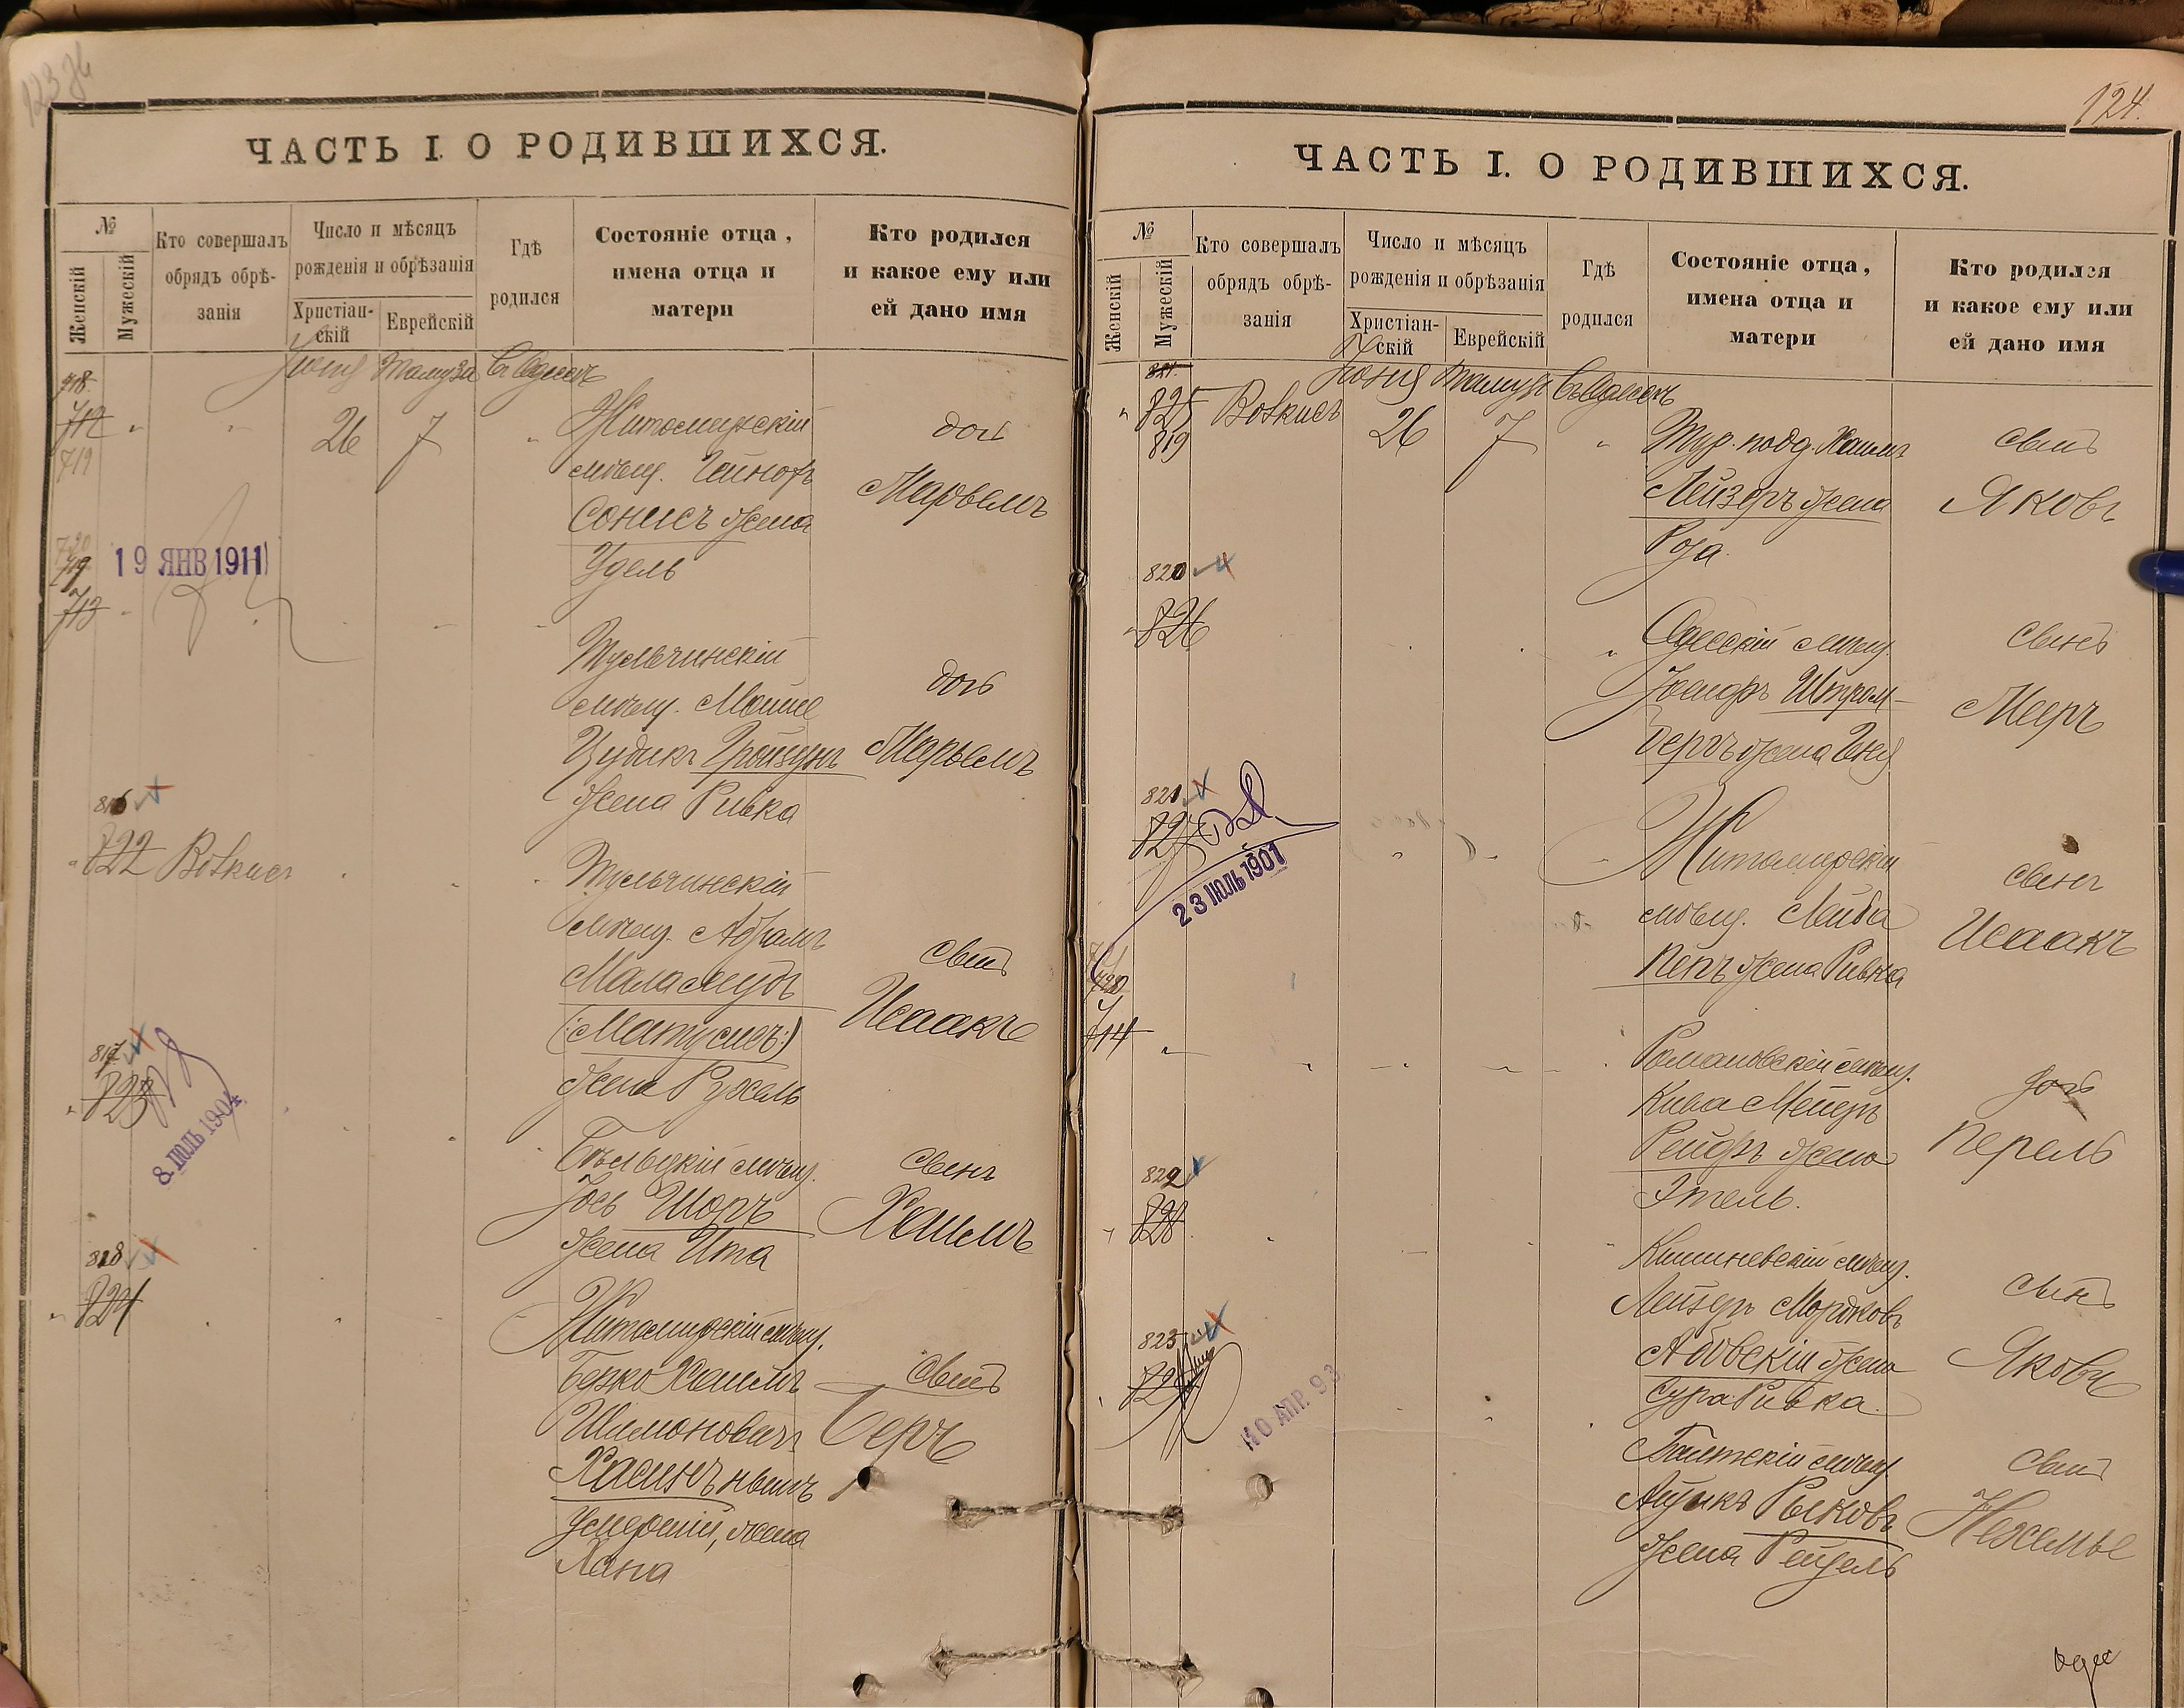 ЧАСТЬ I. О РОДИВШИХСЯ.
№
Женскій
Мужескій
Кто совершалъ
обрядъ обрѣ-
занія
Число и мѣсяцъ
рожденія и обрѣзанія
Христіан-
скій
Еврейскій
Гдѣ
родился
Состояніе отца,
имена отца и
матери
Кто родился
и какое ему или
ей дано имя
718
Іюня Тамуза Въ Одессѣ
712 26 7 Житомирскій дочь
719
мѣщ. Марьемъ
Сонисъ жена
Удель
719
19 ЯНВ 1911
713
Тульчинскій
мѣщ. Мойше дочь
Цудикъ Гройзунъ Марьемъ
жена Ривка
816
822 Вовкисъ
Тульчинскій
мѣщ. Абрамъ сынъ
Маламудъ
(:Матусисъ:) Исаакъ
жена Рухель
817
823
8. ІЮЛЬ 1904
Бѣльцкій мѣщ. сынъ
Іось Шоръ Хаимъ
жена Ита
818
824
Житомирскій мѣщ.
Берко Хаимъ сынъ
Шимоновичъ Беръ
Хасинъ нынѣ
умершій, жена
Хана
124.
ЧАСТЬ I. О РОДИВШИХСЯ.
№
Женскій
Мужескій
Кто совершалъ
обрядъ обрѣ-
занія
Число и мѣсяцъ
рожденія и обрѣзанія
Христіан-
скій
Еврейскій
Гдѣ
родился
Состояніе отца,
имена отца и
матери
Кто родился
и какое ему или
ей дано имя
Іюня Тамузъ Въ Одессѣ
825 Вовкисъ 26 7 Тур. подд. Хаимъ сынъ
819
Лейзеръ жена Яковъ
Роза.
820
826
Одесскій мѣщ. сынъ
Іосифъ Штром-
бергъ жена Мееръ
821
827
23 ІЮЛЬ 1901
Житомирскій
мѣщ. Лейба сынъ
Кепъ жена Ривка Исаакъ
720
714
Романовскій мѣщ. дочь
Кива Мейеръ
Рейфъ жена Перель
Этель.
822
828
Кишиневскій мѣщ.
Лейзеръ Мордковъ сынъ
жена Яковъ
Сура Ривка.
823
829
10 АПР. 93
Балтскій мѣщ. сынъ
Айзикъ Рыковъ Нехемье
жена Рейзель